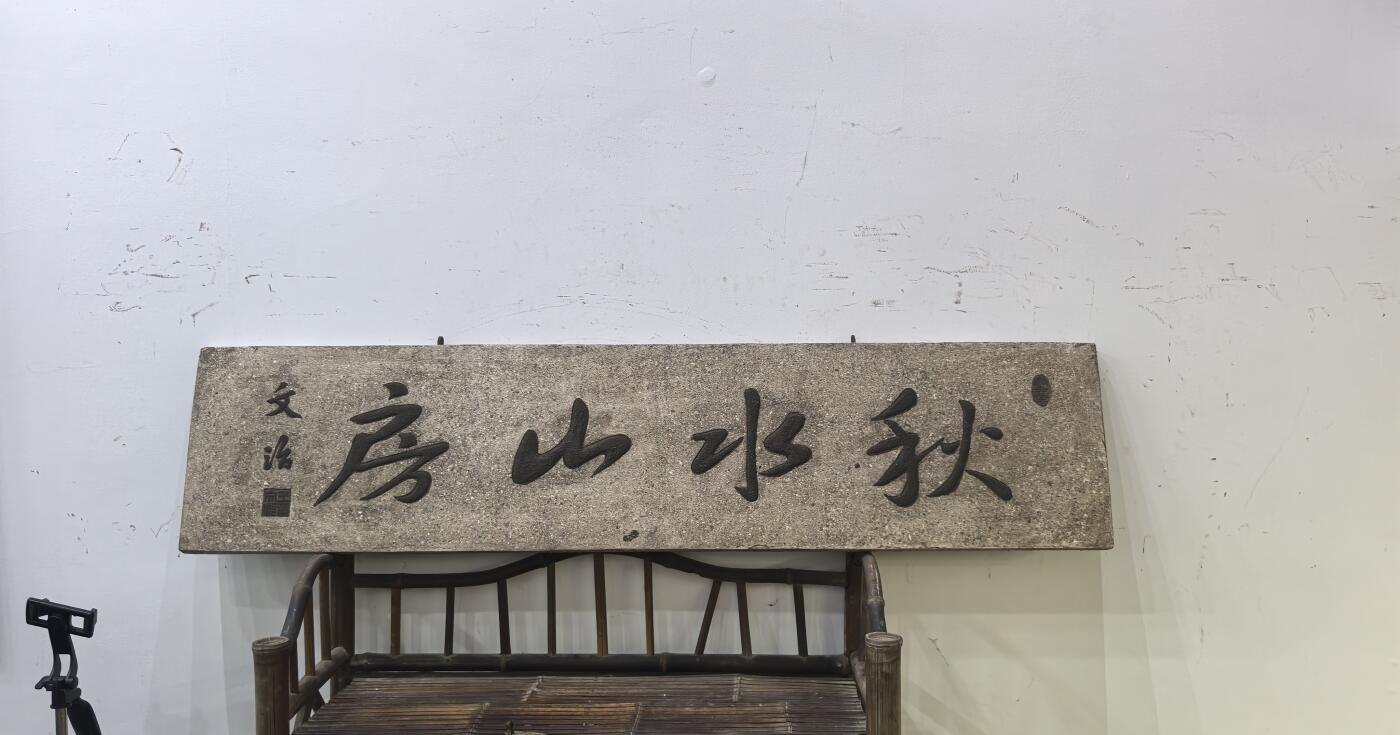 秋水山房
文治